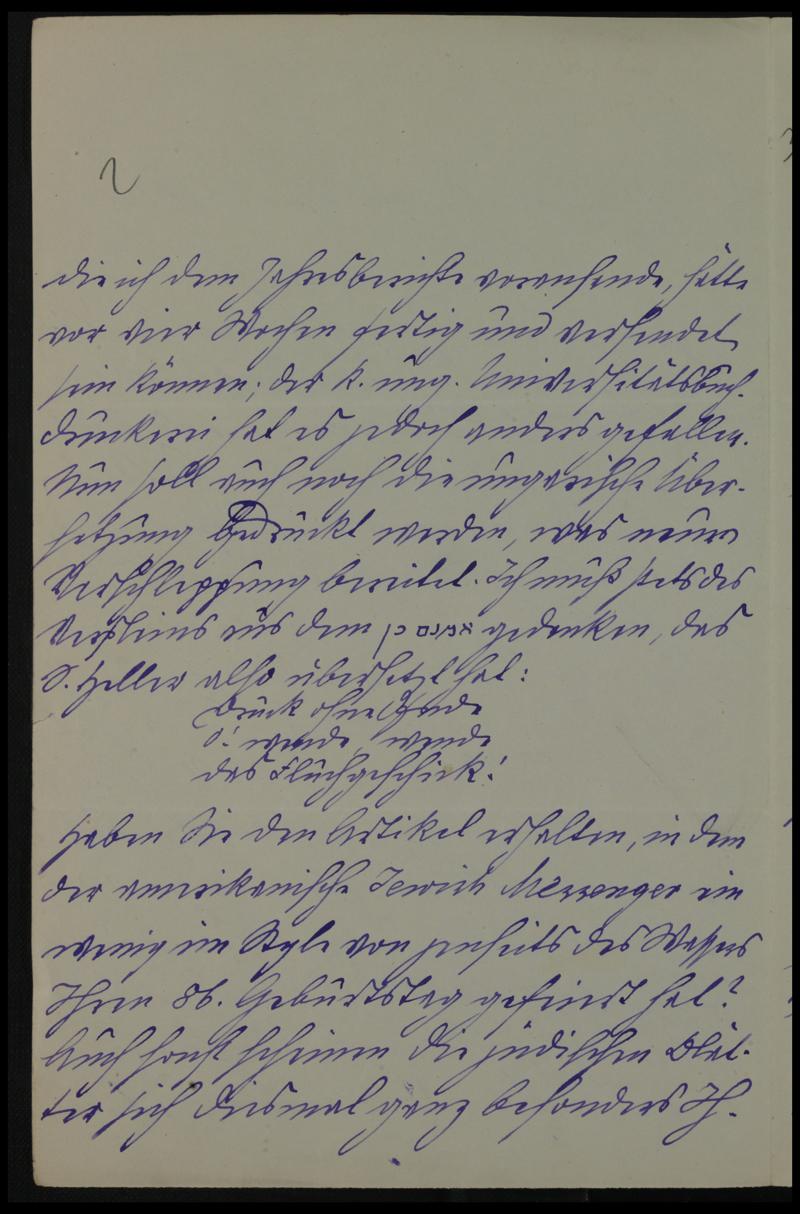 2
die ich dem Jahresberichte voransende, hätte
vor vier Wochen fertig und versendet
sein können; der k. ung. Universitätsbuch-
druckerei hat es jedoch anders gefallen.
Nun soll auch noch die ungarische Über-
setzung gedruckt werden, was neue
Verschleppung bereitet. Ich muß stets des
Versleins aus dem אמנם כן gedenken, das
S. Heller also übersetzt hat:
Druck ohne Ende
O! wende, wende
das Fluchgeschick!
Haben Sie den Artikel erhalten, in dem
der amerikanische Jewish Messenger ein
wenig im Style von jenseits des Wassers
Ihren 86. Geburtstag gefeiert hat?
Auch sonst scheinen die jüdischen Blät-
ter sich diesmal ganz besonders Ih-